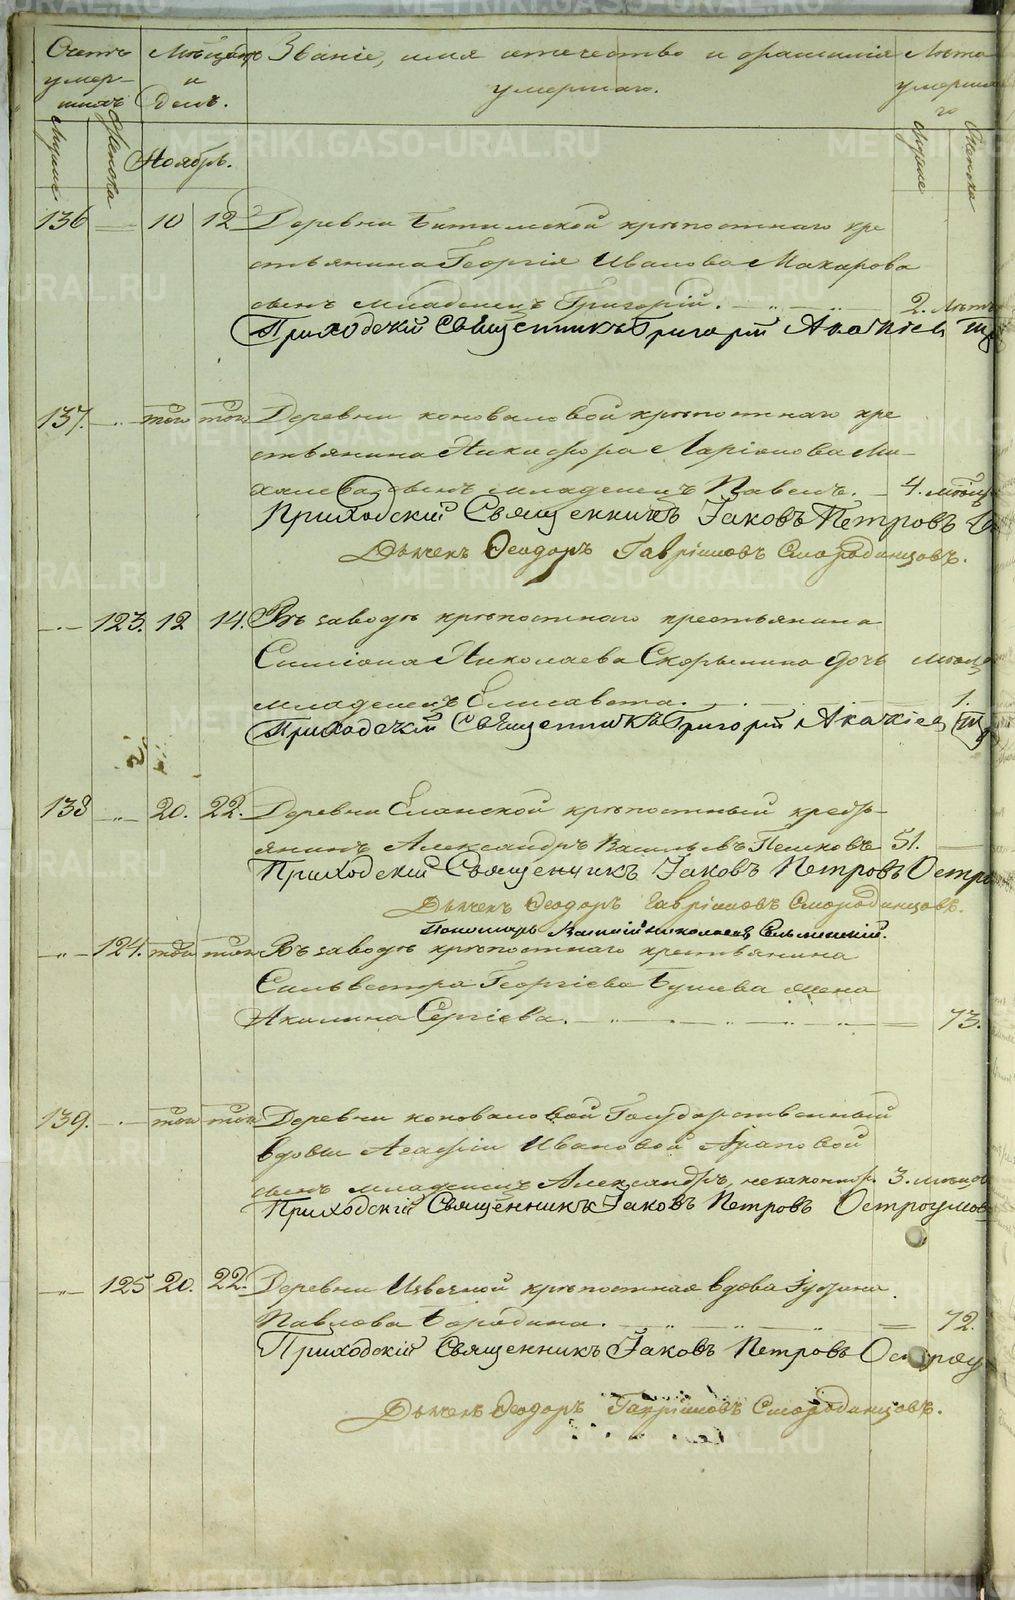 Счетъ умер-шихъ
Мѣсяцъ и день.
Званіе, имя отечество и фамилія умершаго.
Лѣта умершаго
Мужска
Женска
Ноябрь.
Мужие
Женска
136 — 10 12 Деревни Битимской крѣпостнаго кре
стьянина Георгія Иванова Макарова
сынъ младенецъ Григорій. 2. лѣтъ
Приходскій Священникъ Григорій Акакіевъ
137. той той Деревни Коноваловой крѣпостнаго кре
стьянина Никифора Ларіонова Ми-
халева сынъ младенецъ Павелъ. — 4. мѣсяц
Приходский Священникъ Іаковъ Петровъ
Дьячекъ Ѳеодоръ Гаврииловъ Смородинцовъ.
123. 12 14. Въ заводѣ крѣпостнаго крестьянина
Симіона Николаева Скорынина дочь мѣсяц
младенецъ Елисавета. 1.
Приходскій Священникъ Григорій Акакіевъ
138 20. 22. Деревни Еланской крѣпостный кресть-
янинъ Александръ Васильевъ Пешковъ 51.
Приходскій Священникъ Іаковъ Петровъ Остро
Дьячекъ Ѳеодоръ Гавриловъ Смородинцовъ.
Пономарь Василій Николаевъ Сельменскій.
124. той той Въ заводѣ крѣпостнаго крестьянина
Сильвестра Георгіева Бушева жена
Акилина Сергіева. 73.
139. той той Деревни Коноваловой Государственный
вдовы Агафіи Ивановой Араповой
сынъ младенецъ Александръ, незаконнор. 3. мѣсяцов
Приходскій Священникъ Іаковъ Петровъ Остроумов
125 20. 22. Деревни Извезной крѣпостная вдова
Павлова Бородина. 72.
Приходскій Священникъ Іаковъ Петровъ Остроу
Дьячекъ Ѳеодоръ Гаврииловъ Смородинцовъ.
METRIKI.GASO-URAL.RU